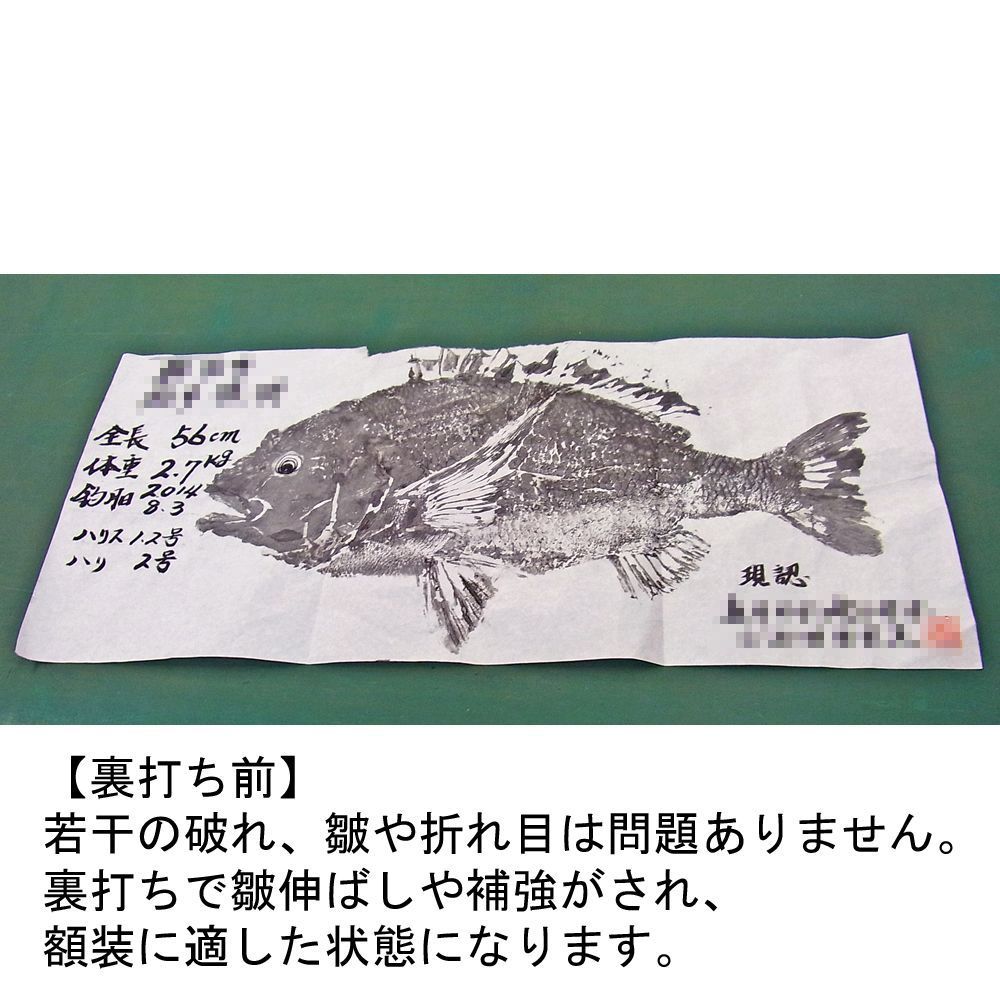 全長 56cm
体重 2.7kg
釣日 2014
8.3
ハリス 1.2号
ハリ 2号
現認
【裏打ち前】
若干の破れ、皺や折れ目は問題ありません。
裏打ちで皺伸ばしや補強がされ、
額装に適した状態になります。